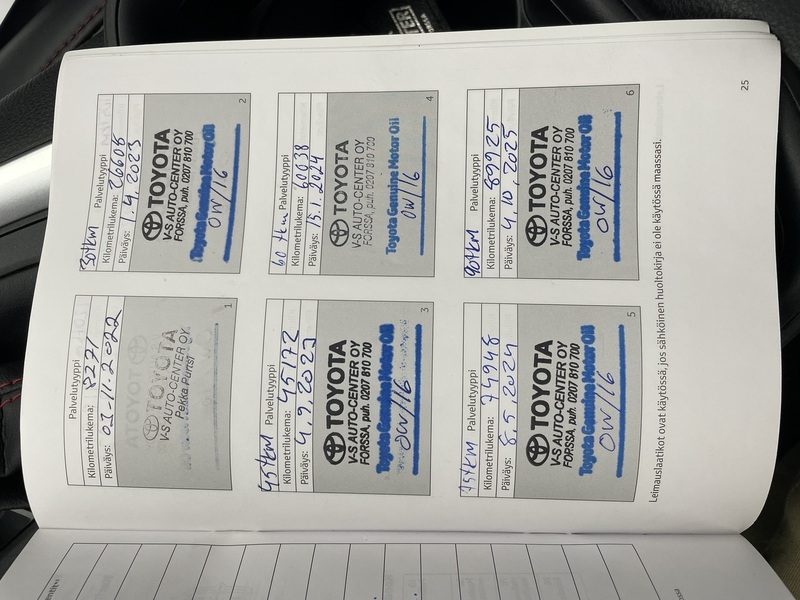 Palvelutyyppi
Kilometrilukema: 8271
Päiväys: 03-11.2022
TOYOTA
V-S AUTO-CENTER OY
Pekka Purtsi
1
30tkm Palvelutyyppi
Kilometrilukema: 26608
Päiväys: 1.4.2023
TOYOTA
V-S AUTO-CENTER OY
FORSSA, puh. 0207 810 700
Toyota Genuine Motor Oil
0W/16
2
45tkm Palvelutyyppi
Kilometrilukema: 45172
Päiväys: 4.9.2023
TOYOTA
V-S AUTO-CENTER OY
FORSSA, puh. 0207 810 700
Toyota Genuine Motor Oil
0W/16
3
60 tkm Palvelutyyppi
Kilometrilukema: 60038
Päiväys: 15.1.2024
TOYOTA
V-S AUTO-CENTER OY
FORSSA, puh. 0207 810 700
Toyota Genuine Motor Oil
0W/16
4
75tkm Palvelutyyppi
Kilometrilukema: 74948
Päiväys: 8.5.2024
TOYOTA
V-S AUTO-CENTER OY
FORSSA, puh. 0207 810 700
Toyota Genuine Motor Oil
0W/16
5
90tkm Palvelutyyppi
Kilometrilukema: 89925
Päiväys: 4,10,2025
TOYOTA
V-S AUTO-CENTER OY
FORSSA, puh. 0207 810 700
Toyota Genuine Motor Oil
0W/16
6
Leimauslaatikot ovat käytössä, jos sähköinen huoltokirja ei ole käytössä maassasi.
25